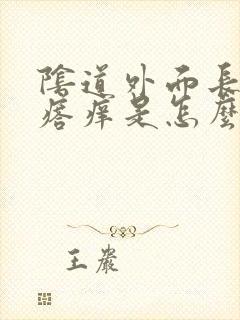 陰道外面長
瘩癢是怎麼
王嚴